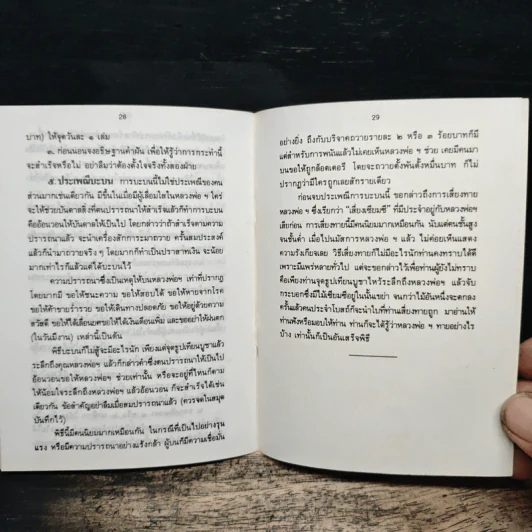 28
บาท) ให้จุดวันละ ๑ เล่ม
๓. ก่อนนอนจงอธิษฐานคำฝัน เพื่อให้รู้ว่าการกระทำนี้
จะสำเร็จหรือไม่ อย่าลืมว่าต้องตั้งใจจริงทั้งสองฝ่าย
๕. ประเพณีบะบน การบะบนนี้ไม่ใช่ประเพณีของคน
ส่วนมากเช่นเดียวกัน มีขึ้นในเมื่อมีผู้เลื่อมใสในหลวงพ่อ ฯ ใคร่
จะให้ช่วยบันดาลสิ่งที่ตนปรารถนาให้สำเร็จแล้วก็ทำการบะบน
คืออ้อนวอนให้บันดาลให้เป็นไป โดยกล่าวว่าถ้าสำเร็จตามความ
ปรารถนาแล้ว จะนำเครื่องสักการะมาถวาย ครั้นสมประสงค์
แล้วก็นำมาถวายจริง ๆ โดยมากก็เป็นปราสาทเงิน จะน้อย
มากเท่าไรก็แล้วแต่ได้บะบนไว้
ความปรารถนาซึ่งเป็นเหตุให้บนหลวงพ่อฯ เท่าที่ปรากฏ
โดยมากมี ขอให้ชนะความ ขอให้สอบได้ ขอให้หายจากโรค
ขอให้ค้าขายร่ำรวย ขอให้เดินทางปลอดภัย ขอให้อยู่ด้วยความ
สวัสดี ขอให้ได้เลื่อนยศขอให้ได้เงินเดือนเพิ่ม และขออย่าให้ฝนตก
(ในวันมีงาน) เหล่านี้เป็นต้น
พิธีบะบนก็ไม่สู้จะมีอะไรนัก เพียงแต่จุดธูปเทียนบูชาแล้ว
ระลึกถึงคุณหลวงพ่อฯ แล้วก็กล่าวคำซึ่งตนปรารถนาให้เป็นไป
อ้อนวอนขอให้หลวงพ่อ ฯ ช่วยเท่านั้น หรือจะอยู่ที่ไหนก็ตาม
ให้น้อมใจระลึกถึงหลวงพ่อฯ แล้วอ้อนวอน ก็จะสำเร็จได้เช่น
เดียวกัน ข้อสำคัญอย่าลืมเมื่อสมปรารถนาแล้ว (ควรจดในสมุด
บันทึกไว้)
พิธีนี้มีคนนิยมมากเหมือนกัน ในกรณีที่เป็นไปอย่างรุน
แรง หรือมีความปรารถนาอย่างแรงกล้า ผู้บนก็มีความเชื่อมั่น
29
อย่างยิ่ง ถึงกับบริจาคถวายรายละ ๒ หรือ ๓ ร้อยบาทก็มี
แต่สำหรับการพนันแล้วไม่เคยเห็นหลวงพ่อ ฯ ช่วย เคยมีคนมา
บนขอให้ถูกล็อตเตอรี่ โดยจะถวายตั้งพันตั้งหมื่นบาท ก็ไม่
ปรากฏว่ามีใครถูกเลยสักรายเดียว
ก่อนจบประเพณีการบะบนนี้ ขอกล่าวถึงการเสี่ยงทาย
หลวงพ่อ ฯ ซึ่งเรียกว่า "เสี่ยงเซียมซี" ที่มีประจำอยู่กับหลวงพ่อฯ
เสียก่อน การเสี่ยงทายนี้มีคนนิยมมากเหมือนกัน นับแต่คนชั้นสูง
จนชั้นต่ำ เมื่อไปนมัสการหลวงพ่อ ฯ แล้ว ไม่ค่อยเห็นแสดง
ความรังเกียจเลย วิธีเสี่ยงทายก็ไม่มีอะไรนักท่านคงทราบได้ดี
เพราะมีแพร่หลายทั่วไป แต่จะขอกล่าวไว้เพื่อท่านผู้ยังไม่ทราบ
คือเพียงท่านจุดธูปเทียนบูชาไหว้ระลึกถึงหลวงพ่อฯ แล้วจับ
กระบอกซึ่งมีไม้เซียมซีอยู่ในนั้นเขย่า จนกว่าไม้อันหนึ่งจะตกลง
ครั้นแล้วคนประจำโบสถ์ก็จะนำใบที่ท่านเสี่ยงทายถูก มาอ่านให้
ท่านฟังหรือมอบให้ท่าน ท่านก็จะได้รู้ว่าหลวงพ่อ ฯ ทายอย่างไร
บ้าง เท่านั้นก็เป็นอันเสร็จพิธี